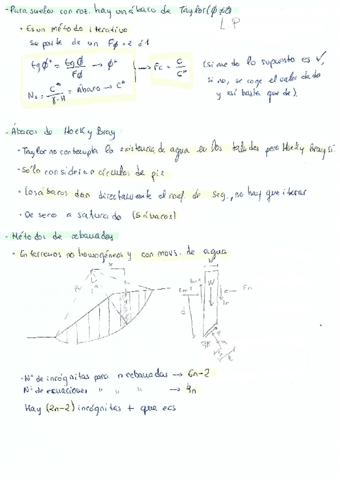 -Para suelos con roz. hay un ábaco de Taylor (ϕ≠0)
• Es un método iterativo
Se parte de un Fϕ = 2 ó 1
tgϕ* = tgϕ / Fϕ → ϕ*
Ns = C* / γ·H = Ábaco → C*
→ Fc = C / C*
(si me da lo supuesto es ✓, si no, se coge el valor dado y así hasta que dé).
- Ábacos de Hoek y Bray
• Taylor no contempla la existencia de agua en los taludes pero Hoek y Bray sí.
• Sólo consideran círculos de pie
• Los ábacos dan directamente el coef. de seg., no hay que iterar
• De seco a saturado (5 ábacos)
- Métodos de rebanadas
• En terrenos no homogéneos y con movs. de agua
W
En
- Nº de incógnitas para n rebanadas → 6n-2
Nº de ecuaciones " " " → 4n
Hay (2n-2) incógnitas + que ecs